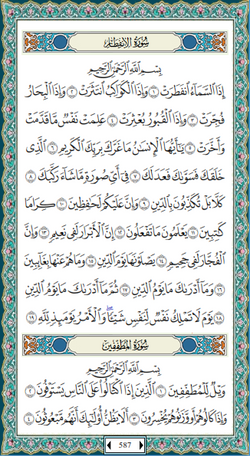 سُورَةُ الِانفِطَارِ
بِسْمِ اللَّهِ الرَّحْمَٰنِ الرَّحِيمِ
إِذَا السَّمَاءُ انفَطَرَتْ ١ وَإِذَا الْكَوَاكِبُ انتَثَرَتْ ٢ وَإِذَا الْبِحَارُ
فُجِّرَتْ ٣ وَإِذَا الْقُبُورُ بُعْثِرَتْ ٤ عَلِمَتْ نَفْسٌ مَّا قَدَّمَتْ
وَأَخَّرَتْ ٥ يَا أَيُّهَا الْإِنسَانُ مَا غَرَّكَ بِرَبِّكَ الْكَرِيمِ ٦ الَّذِي
خَلَقَكَ فَسَوَّاكَ فَعَدَلَكَ ٧ فِي أَيِّ صُورَةٍ مَّا شَاءَ رَكَّبَكَ ٨
كَلَّا بَلْ تُكَذِّبُونَ بِالدِّينِ ٩ وَإِنَّ عَلَيْكُمْ لَحَافِظِينَ ١٠ كِرَامًا
كَاتِبِينَ ١١ يَعْلَمُونَ مَا تَفْعَلُونَ ١٢ إِنَّ الْأَبْرَارَ لَفِي نَعِيمٍ ١٣ وَإِنَّ
الْفُجَّارَ لَفِي جَحِيمٍ ١٤ يَصْلَوْنَهَا يَوْمَ الدِّينِ ١٥ وَمَا هُمْ عَنْهَا بِغَائِبِينَ
١٦ وَمَا أَدْرَاكَ مَا يَوْمُ الدِّينِ ١٧ ثُمَّ مَا أَدْرَاكَ مَا يَوْمُ الدِّينِ
١٨ يَوْمَ لَا تَمْلِكُ نَفْسٌ لِّنَفْسٍ شَيْئًا وَالْأَمْرُ يَوْمَئِذٍ لِّلَّهِ ١٩
سُورَةُ الْمُطَفِّفِينَ
بِسْمِ اللَّهِ الرَّحْمَٰنِ الرَّحِيمِ
وَيْلٌ لِّلْمُطَفِّفِينَ ١ الَّذِينَ إِذَا اكْتَالُوا عَلَى النَّاسِ يَسْتَوْفُونَ ٢
وَإِذَا كَالُوهُمْ أَو وَّزَنُوهُمْ يُخْسِرُونَ ٣ أَلَا يَظُنُّ أُولَٰئِكَ أَنَّهُم مَّبْعُوثُونَ ٤
587